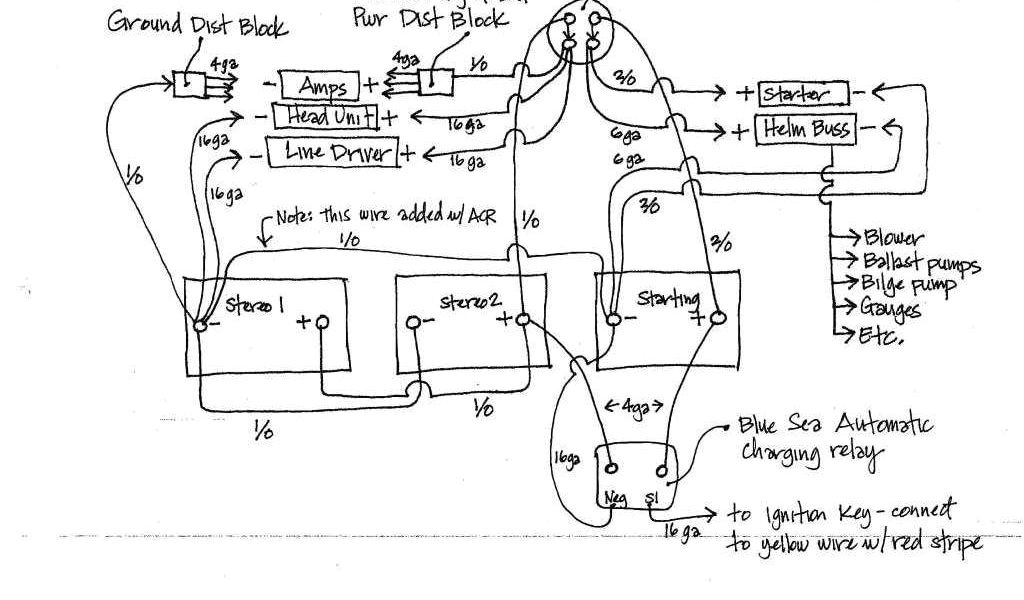 Pwr Dist Block
Ground Dist Block
4ga
4ga
1/0
2/0
- Amps +
+ Starter -
- Head Unit +
16ga
16ga
6ga
+ Helm Buss -
- Line Driver +
16ga
6ga
1/0
16ga
2/0
Note: this wire added w/ ACR
1/0
1/0
2/0
Blower
Ballast pumps
Bilge pump
Gauges
Etc.
Stereo 1
- +
Stereo 2
- +
Starting
- +
1/0
1/0
4ga
Blue Sea Automatic
charging relay
16ga
Neg SI
16ga
to Ignition Key - connect
to yellow wire w/ red stripe